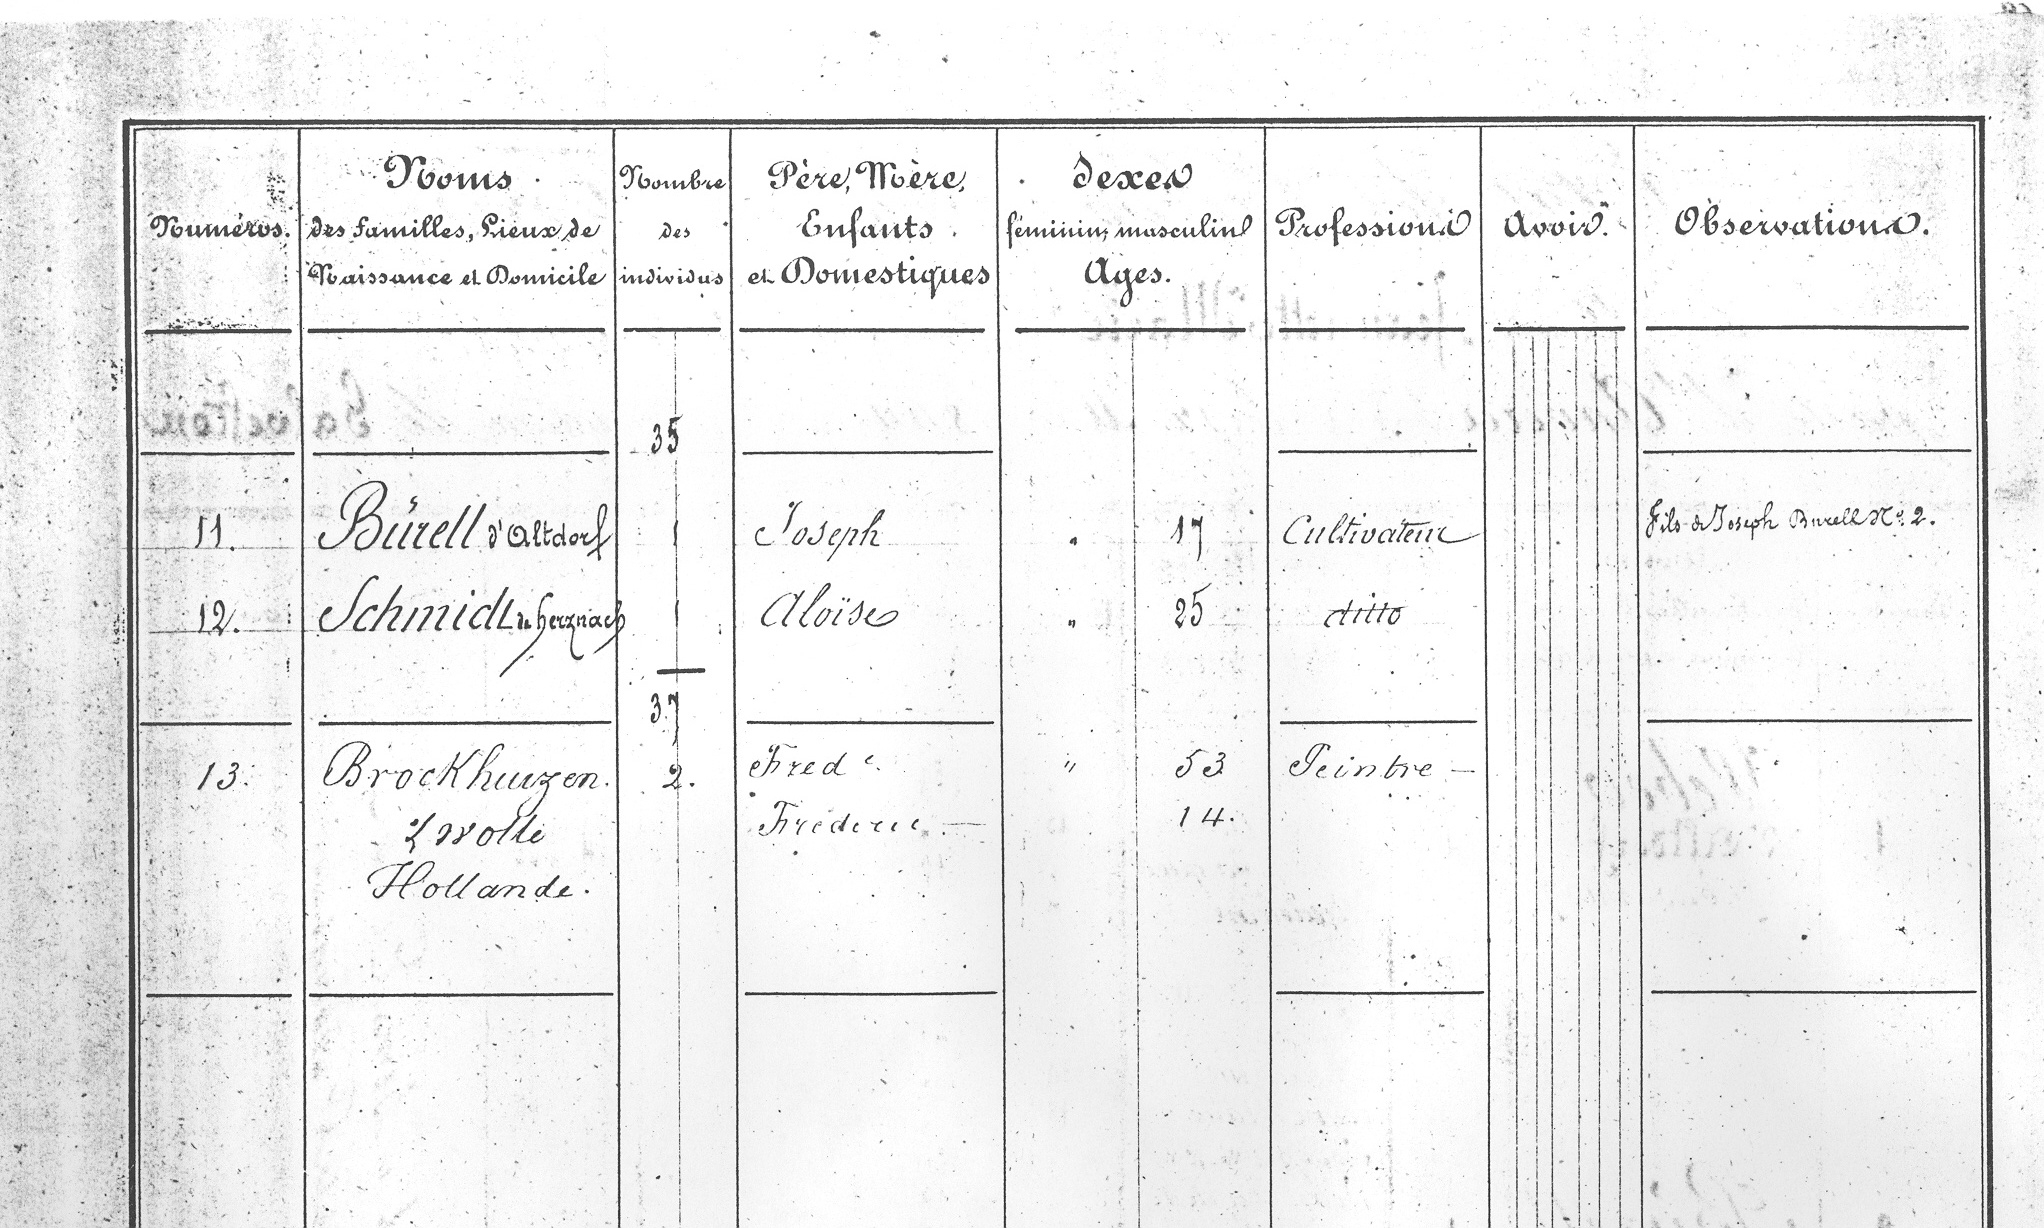 Numéros.
Noms
des familles, Lieux de
Naissance et Domicile
Nombre
des
individus
Père, Mère,
Enfants
et Domestiques
Sexes
féminin, masculin
Ages.
Professions
Avoir.
Observations.
35
11. Bürell d'Altdorf 1 Joseph " 17 Cultivateur Fils de Joseph Burell No. 2.
12. Schmidt de Herznach 1 Aloïse " 25 ditto
37
13. Brockhuizen. 2. Fred c. " 53 Peintre —
Zwolle Frederic — 14.
Hollande.